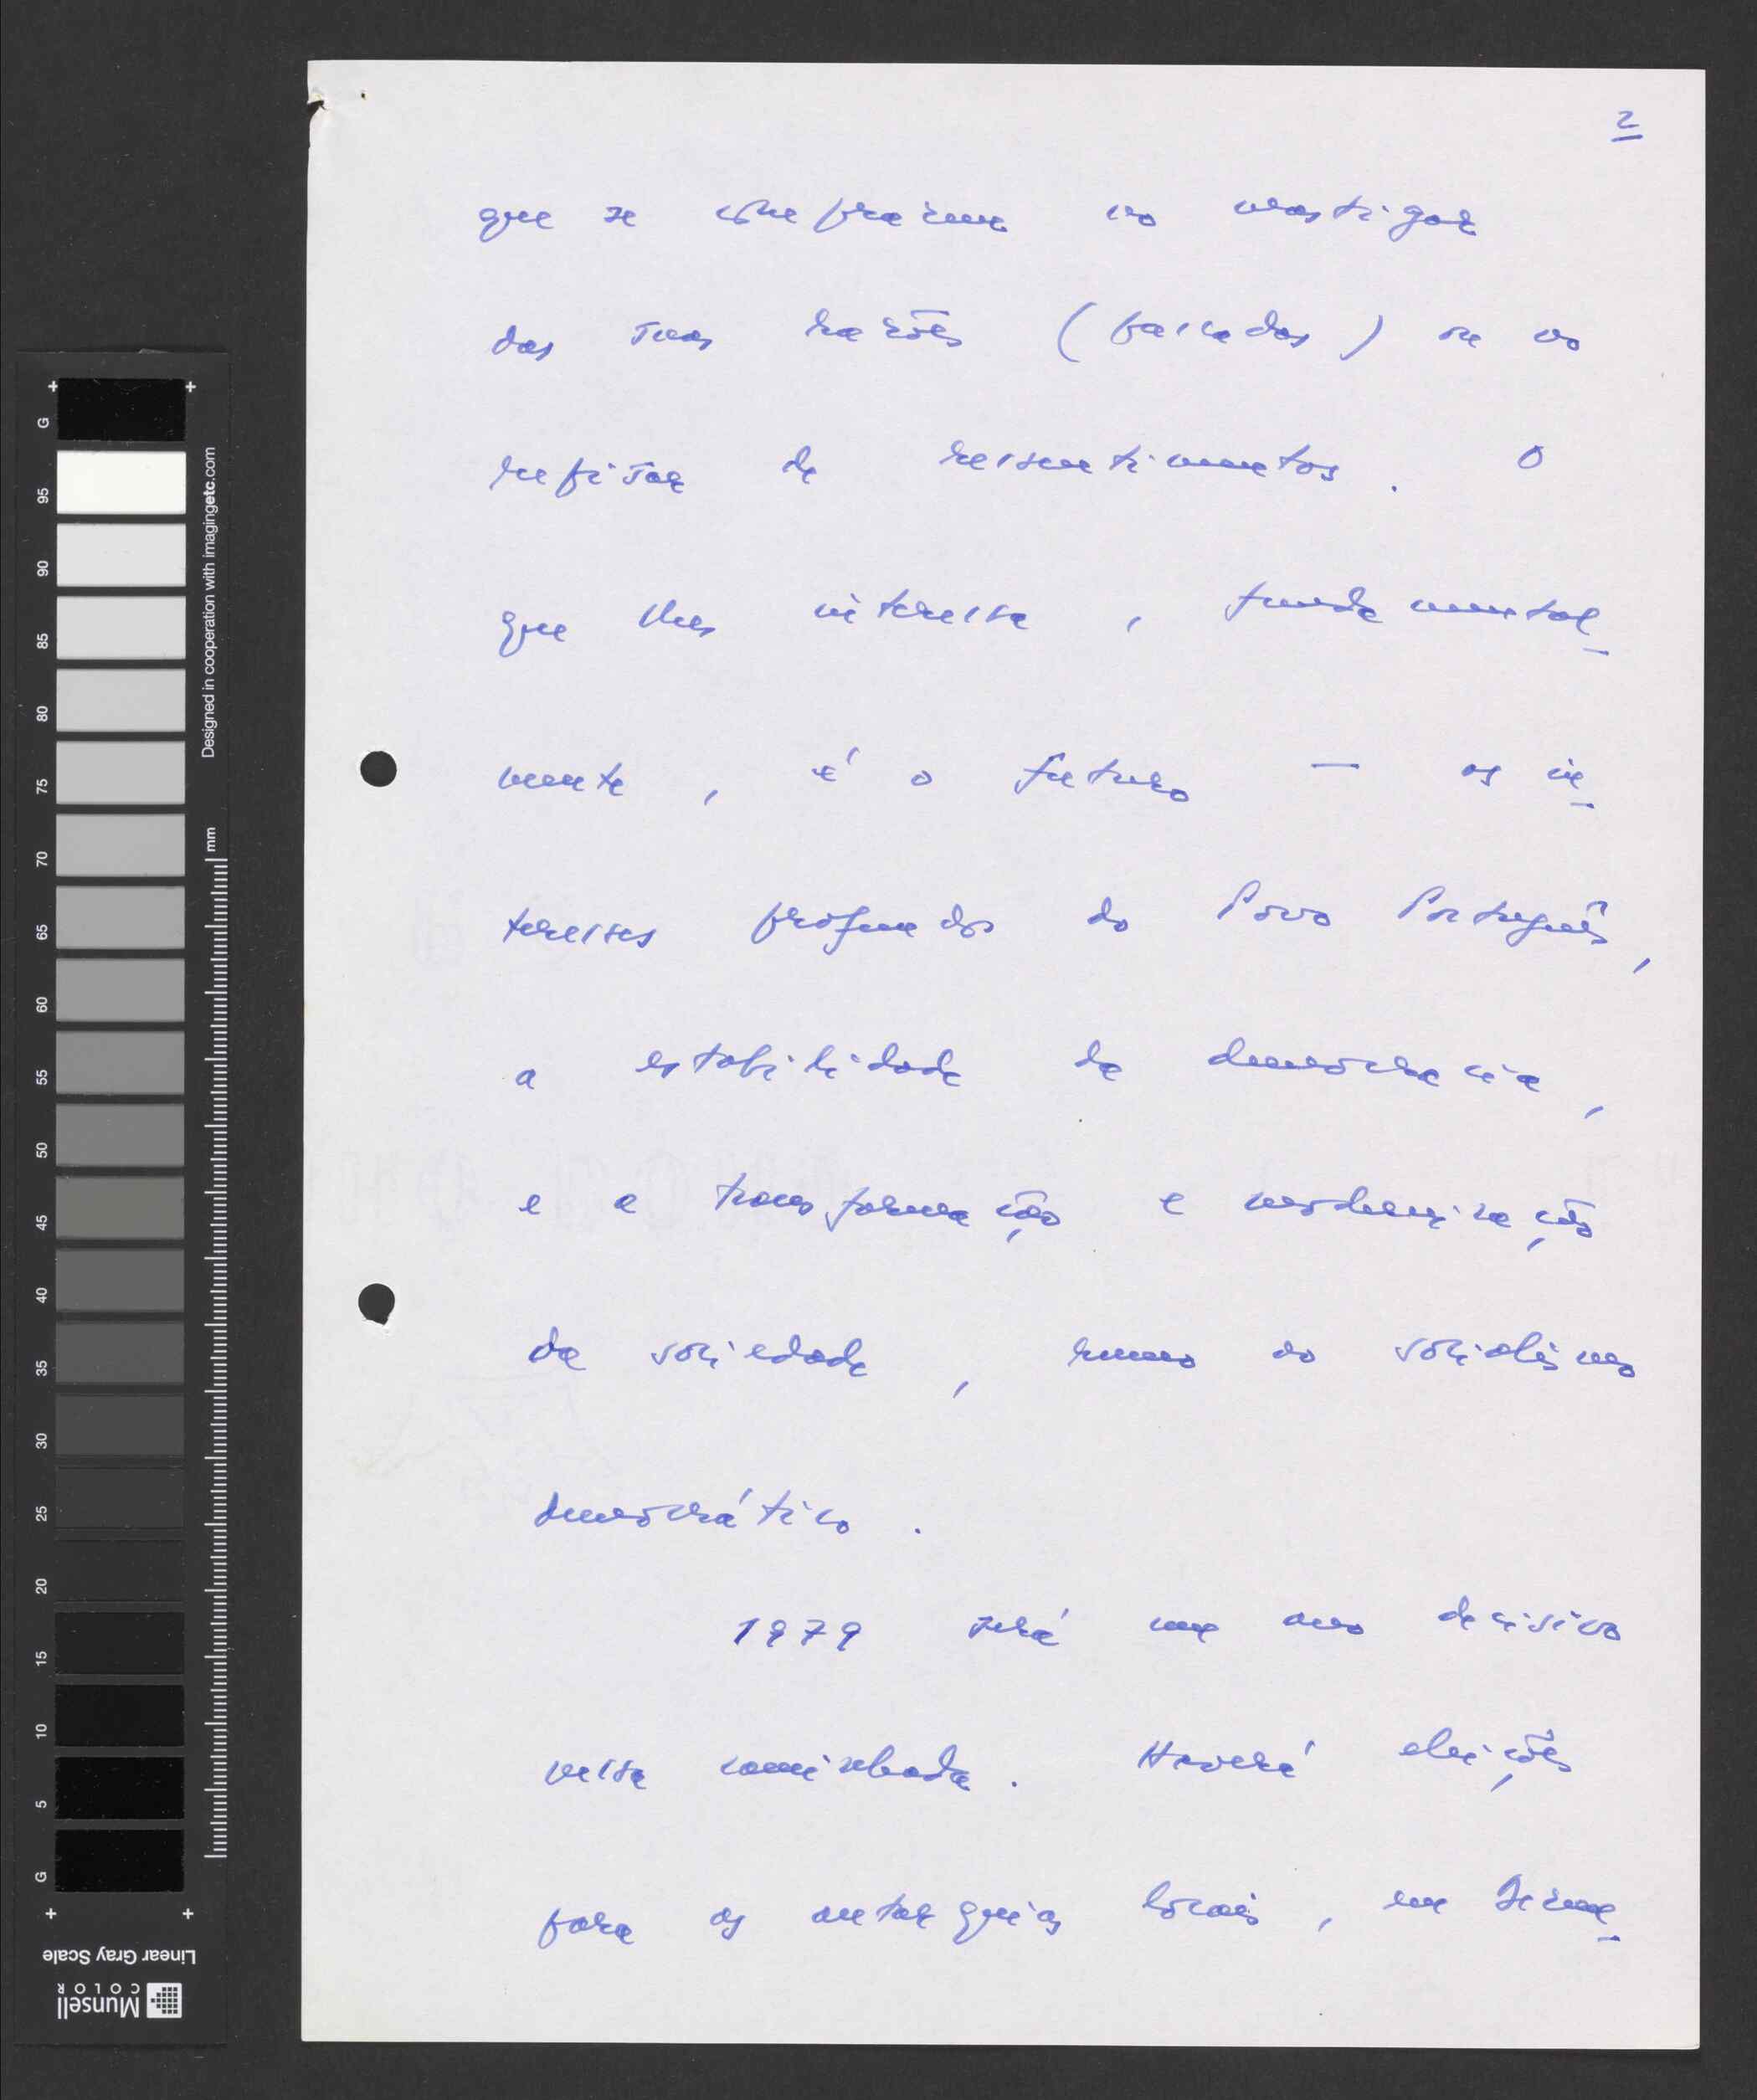 2
que se comprazem no mastigar
das suas razões (passadas) ou no
repisar de ressentimentos. O
que lhes interessa, fundamental-
mente, é o futuro — os in-
teresses profundos do Povo Português,
a estabilidade da democracia,
e a transformação e modernização
da sociedade, rumo ao socialismo
democrático.
1979 será um ano decisivo
nessa caminhada. Haverá eleições
para as autarquias locais, em Dezem-
G
95
90
85
80
75
70
65
60
55
50
45
40
35
30
25
20
15
10
5
G
Designed in cooperation with imagingetc.com
mm
Linear Gray Scale
Munsell
COLOR